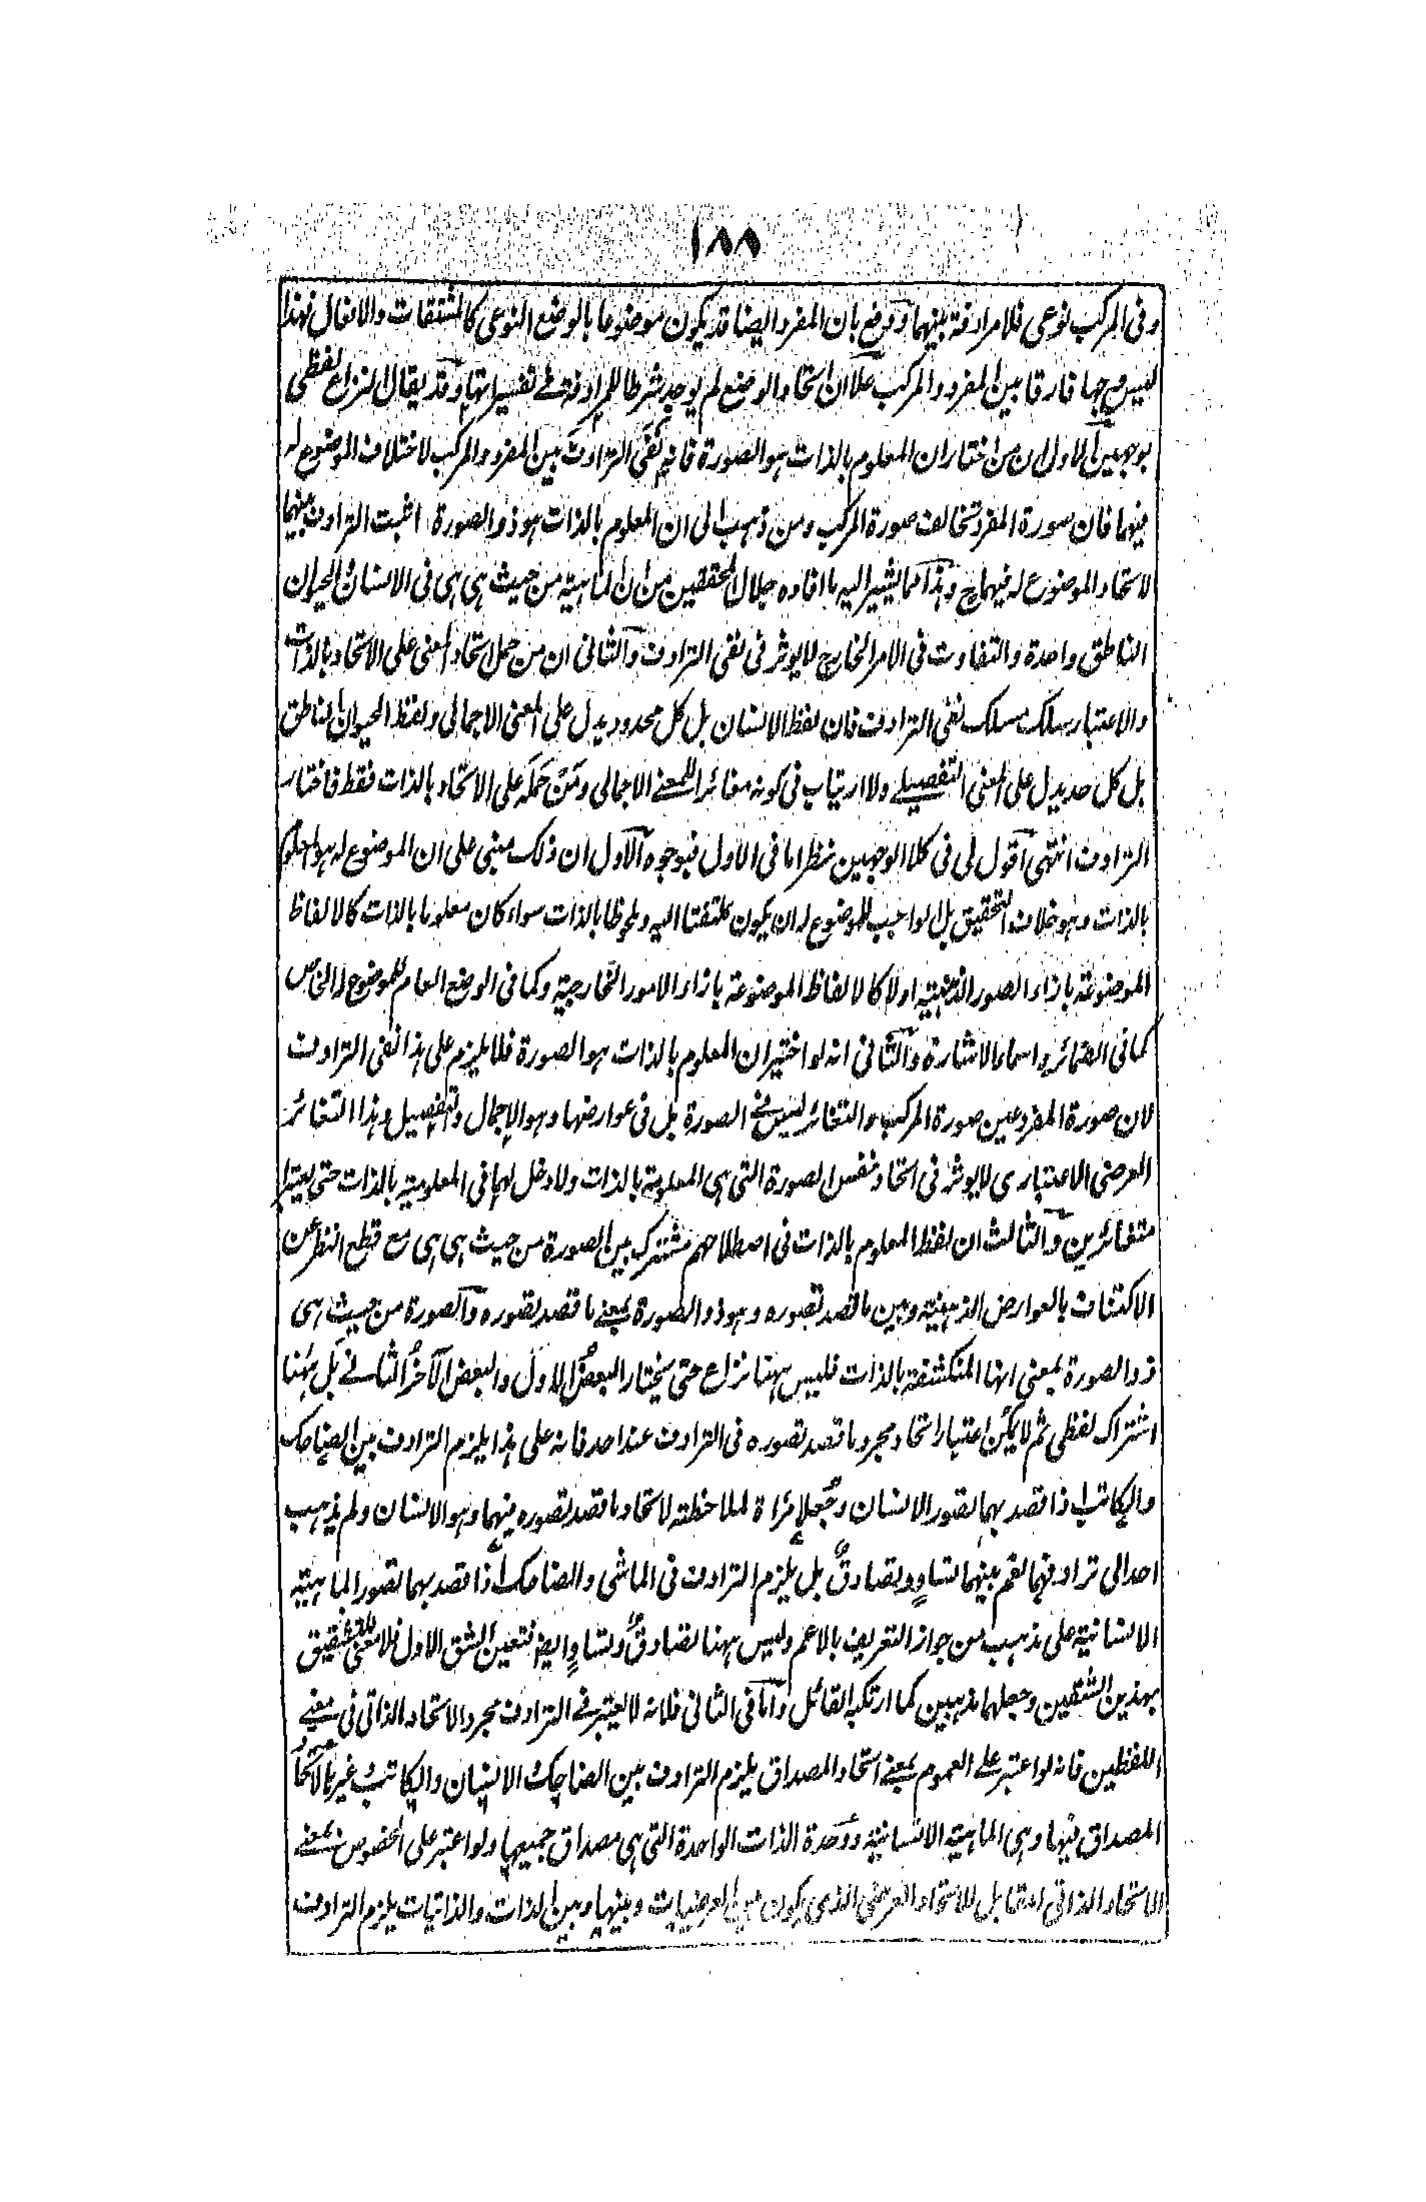 ١٨٨
وفى المركب نوعى فلا مرادفة بينهما ودفع بان المفرد ايضا قد يكون موضوعا بالوضع النوعى كالمشتقات والافعال فهذا
ليس وجها فارقا بين المفرد والمركب علا ان اتحاد الوضع لم يوجد شرطا للمرادفة فى تفسيراتها وقد يقال النزاع لفظى
بوجهين الاول ان من اختار ان المعلوم بالذات هو الصورة فانه نفى الترادف بين المفرد والمركب لاختلاف الموضوع له
فيهما فان صورة المفرد تخالف صورة المركب ومن ذهب الى ان المعلوم بالذات هو ذو الصورة اثبت الترادف بينهما
لاتحاد الموضوع له فيهما ح وهذا مما يشير اليه ما افاده جلال المحققين من ان الماهية من حيث هى هى فى الانسان الحيوان
الناطق واحدة والتفاوت فى الامر الخارج لا يوثر فى نفى الترادف والثانى ان من حمل اتحاد المعنى على الاتحاد بالذات
والاعتبار سلك مسلك نفى الترادف فان لفظ الانسان بل كل محدود يدل على المعنى الاجمالى ولفظ الحيوان الناطق
بل كل حد يدل على المعنى التفصيلے ولا ارتياب فى كونه مغائرا للمعنے الاجمالى ومن حمله على الاتحاد بالذات فقط فاختار
الترادف انتهى اقول لى فى كلا الوجهين نظر اما فى الاول فبوجوه الاول ان ذلك مبنى على ان الموضوع له هو المعلوم
بالذات وهو خلاف التحقيق بل الواجب للموضوع له ان يكون ملتفتا اليه وملحوظا بالذات سواء كان معلوما بالذات كالالفاظ
الموضوعة بازاء الصور الذهنية اولا كالالفاظ الموضوعة بازاء الامور الخارجية وكما فى الوضع العام للموضوع له الخاص
كما فى الضمائر واسماء الاشارة والثانى انه لو اختير ان المعلوم بالذات هو الصورة فلا يلزم على هذا نفى الترادف
لان صورة المفرد عين صورة المركب والتغائر ليس فے الصورة بل فى عوارضها وهو الاجمال والتفصيل وهذا التغائر
العرضى الاعتبارى لا يوثر فى اتحاد نفس الصورة التى هى المعلومة بالذات ولا دخل لهما فى المعلومية بالذات حتى يعتبرا
متغائرين والثالث ان لفظ المعلوم بالذات فى اصطلاحهم مشترك بين الصورة من حيث هى هى مع قطع النظر عن
الاكتناف بالعوارض الذهنية وبين ما قصد تصوره وهو ذو الصورة بمعنے ما قصد تصوره والصورة من حيث هى
ذو الصورة بمعنى انها المنكشفة بالذات فليس ههنا نزاع حتى يختار البعض الاول والبعض الآخر الثانے بل ههنا
اشتراك لفظى ثم لا يمكن اعتبار اتحاد مجرد ما قصد تصوره فى الترادف عند احد فانه على هذا يلزم الترادف بين الضاحك
والكاتب اذا قصد بهما تصور الانسان وجعلا مرأة لملاحظته لاتحاد ما قصد تصوره فيهما وهو الانسان ولم يذهب
احد الى ترادفهما نعم بينهما تساو وتصادق بل يلزم الترادف فى الماشى والضاحك اذا قصد بهما تصور الماهية
الانسانية على مذهب من جواز التعريف بالاعم وليس ههنا تصادق وتساو ايضا فتعين الشق الاول فلا معنى للتشقيق
بهذين الشقين وجعلهما مذهبين كما ارتكبه القائل واما فى الثانى فلانه لا يعتبر فے الترادف مجرد الاتحاد الذاتى فى معنے
اللفظين فانه لو اعتبر علے العموم بمعنے اتحاد المصداق يلزم الترادف بين الضاحك الانسان والكاتب غيرها لاتحاد
المصداق فيها وهى الماهية الانسانية ووحدة الذات الواحدة التى هى مصداق جميعها ولو اعتبر على الخصوص بمعنے
الاتحاد الذاتى المقابل للاتحاد العرضى الذى يكون بين العرضيات وبينها وبين الذات والذاتيات يلزم الترادف